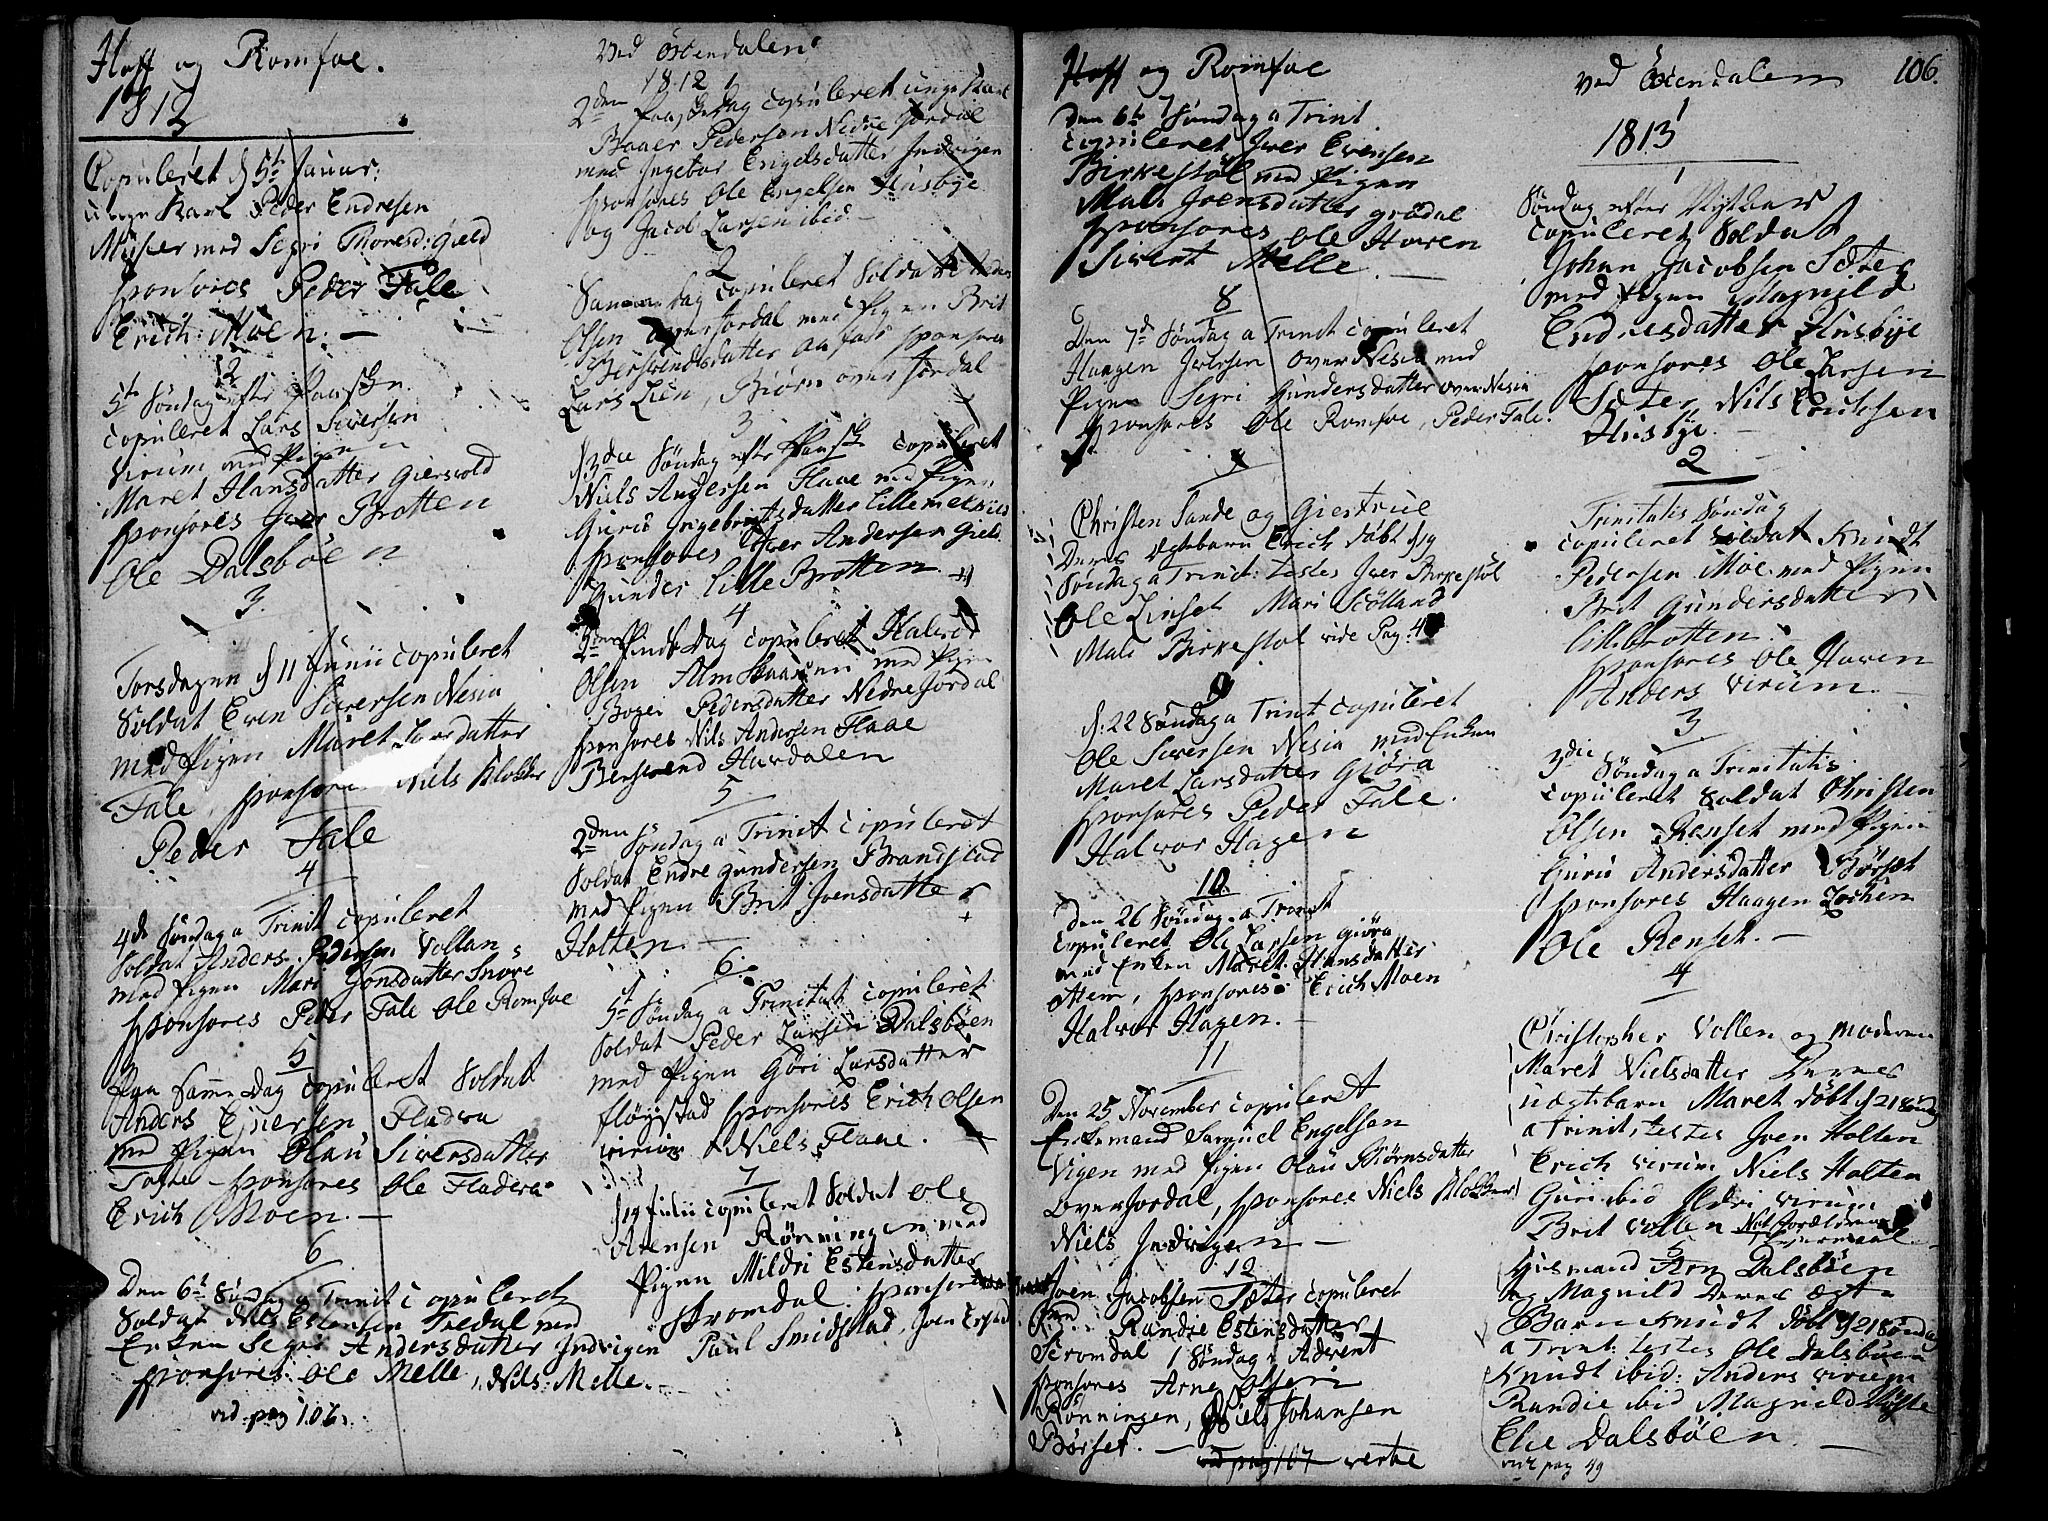 Hoff og Romfoe.
1812
Copuleret d 5t Januar:
unge Karl Peder Endresen
Muser med Segri Thoresd: Gield
sponsores Peder Fale
Erich Moen. —
2
5te Søndag efter Paaschen
copuleret Lars Siversen
Virum med Pigen
Maret Hansdatter Gierwold
sponsores Iver Brotten
Ole Dalsbøen
3.
Torsdagen d 11 Junii copuleret
Soldat Even Siversen Nesia
med Pigen Maret Larsdatter
Fale, sponsores Niels Klokker
Peder Fale
4
4de Søndag a Trinit copuleret
Soldat Anders Pedersen Vollan
med Pigen Mari Jonsdatter Snøve
sponsores Peder Fale Ole Romfoe
5
Paa Samme Dag copuleret Soldat
Anders Ejnersen Fladvra
med Pigen Olau Siversdatter
Tofte - sponsores Ole Fladvra
Erich Moen. —
6
Den 6t Søndag a Trinit copuleret
Soldat Nils Estensen Tredal med
Enken Segri Andersdatter Indvigen
sponsores: Ole Melle, Nils: Melle. —
vid pag 106.
Ved Öxendalen
1812
2den Paaskedag copuleret unge Karl
Baaer Pedersen Nedre Jordal
med Ingebor Engelsdatter Indvigen
sponsores Ole Engelsen Husbye
og Jacob Larsen ibid —
2
Samme Dag copuleret Soldat Peder
Olsen Overjordal med Pigen Brit
Berswendsdatter Aafars sponsores
Lars Lien, Biørn over Jordal
3
d 3die Søndag efter Paask copuleret
Niels Andersen Flaae med Pigen
Guru Ingebrigtsdatter Lillemelhuus
sponsores Iver Andersen Gield
Gunder Lille Brotten
4
2den Pindsedag copuleret Halvor
Olsen Almskaaren med Pigen
Bogei Pedersdatter Nedre Jordal
sponsores Nils Andersen Flaae
Berswend Havdalen
5
2den Søndag a Trinit copuleret
Soldat Endre Gundersen Brandstad
med Pigen Brit Joensdatter
Holten. —
6.
5t Søndag a Trinitat copuleret
Soldat Peder Larsen Dalsbøen
med Pigen Göri Larsdatter
fløystad sponsores Erich Olsen
virum & Niels Flaae.
7
d 19 Julii copuleret Soldat Ole
Arensen Rønningen med
Pigen Mildri Estensdatter
Stromdal. sponsores
Paul Smidstad, Joen
Hoff og Romfoe
7
Den 6te Søndag a Trint
copuleret Iver Evensen
Birkestøl med Pigen
Mali Joensdatter Grødal
sponsores Ole Haven
Sivert Melle. —
8
Den 7de Søndag a Trinit copuleret
Haagen Iversen Over Nesia med
Pigen Segri Gundersdatter over Nesia
sponsores Ole Romfoe, Peder Fale.
Christen Sande og Giertrue
Deres Ægtebarn Erich døbt d 19
Søndag a Trinit: testes Iver Birkestøl
Ole Linset Mari Scølland
Mali Birkestøl vide Pag: 4
9
d: 22 Søndag a Trinit copuleret
Ole Siversen Nesia med Enken
Maret Larsdatter Giøra
sponsores Peder Fale.
Halvor Hagen
10
Den 26 Søndag a Trinit
copuleret Ole Larsen Giøra
med Enken Maret Hansdatter
Hem, sponsores: Erich Moen
Halvor Hagen. —
11
Den 25 November copuleret
Enkemand Samuel Engelsen
Vigen med Pigen Olau Biörnsdatter
Overjordal, sponsores Niels Klokker
Niels Indvigen —
12
Joen Jacobsen Sæter copuleret
med Randie Estensdatter
Stromdal 1 Søndag i Advent
sponsores Arne Olsen
Rönningen, Niels Johansen
Børset. —
vid pag 107 verte
ved Öxendalen 106.
1813
1
Søndag efter Nytaar
copuleret Soldat
Johan Jacobsen Sæter
med Pigen Magnild
Endresdatter Husbye
sponsores Ole Larsen
Sæter Nils Erichsen
Husbye. —
2
Trinitatis Søndag
copuleret Soldat Knudt
Pedersen Moe med Pigen
Brit Gundersdatter
Lillebrotten.
sponsores Ole Haven
Anders Virum. —
3.
3die Søndag a Trinitatis
copuleret Soldat Christen
Olsen Renset med Pigen
Guru Andersdatter Børset
sponsores Haagen Lochen
Ole Renset. —
4
Christopher Vollen og Moderen
Maret Nielsdatter Deres
uægtebarn Maret døbt d 21 Søndag
a Trinit, testes Joen Holten
Erich Virum Niels Holten
Guri ibid Ildri Virum
Brit Vollen
5
Husmand Arn Dalsbøen
og Magnild Deres Ægte
Barn Knudt døbt d 21 Søndag
a Trint: testes Ole Dalsbøen
Knudt ibid: Anders virum
Randie ibid Magnild
Elie Dalsbøen —
vide pag 49